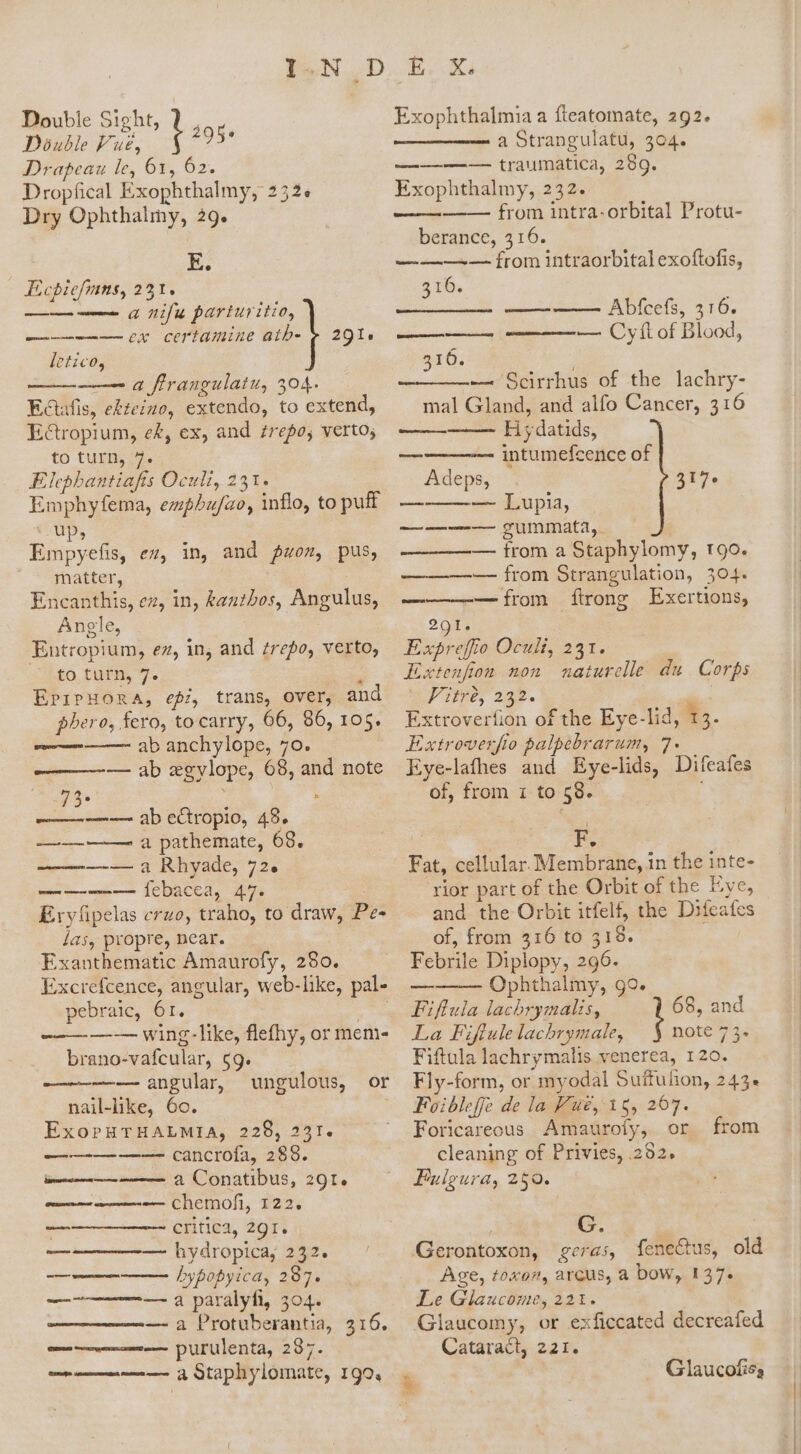 I N D E X.
Double Sight, } 295.
Double Vuë,
Drapeau le, 61, 62.
Dropſical Exophthalmy, 232.
Dry Ophthalmy, 29.
E.
Ecpieſmns, 231.
—— a niſu parturitio,
—— ex certamine ath- } 291.
letico,
—— a ſtrangulatu, 304.
Ectaſis, ekteino, extendo, to extend,
Ectropium, ek, ex, and trepo, verto,
to turn, 7.
Elephantiaſis Oculi, 231.
Emphyſema, emphuſao, inflo, to puff
up,
Empyeſis, en, in, and puon, pus,
matter,
Encanthis, en, in, kanthos, Angulus,
Angle,
Entropium, en, in, and trepo, verto,
to turn, 7.
EPIPHORA, epi, trans, over, and
phero, fero, to carry, 66, 86, 105.
—— ab anchylope, 70.
—— ab ægylope, 68, and note
73.
—— ab ectropio, 48.
—— a pathemate, 68.
—— a Rhyade, 72.
—— ſebacea, 47.
Eryſipelas eruo, traho, to draw, Pe-
las, propre, near.
Exanthematic Amauroſy, 280.
Excreſcence, angular, web-like, pal-
pebraic, 61.
—— wing-like, fleſhy, or mem-
brano-vaſcular, 59.
—— angular, ungulous, or
nail-like, 60.
EXOPHTHALMIA, 228, 231.
—— cancroſa, 288.
—— a Conatibus, 291.
—— chemoſi, 122.
—— critica, 291.
—— hydropica, 232.
—— hypopyica, 287.
—— a paralyſi, 304.
—— a Protuberantia, 316.
—— purulenta, 287.
—— a Staphylomate, 190.
Exophthalmia a ſteatomate, 292.
—— a Strangulatu, 304.
—— traumatica, 289.
Exophthalmy, 232.
—— from intra-orbital Protu-
berance, 316.
—— from intraorbital exoſtoſis,
316.
—— —— Abſceſs, 316.
—— —— Cyſt of Blood,
316.
—— Scirrhus of the lachry-
mal Gland, and alſo Cancer, 316
—— Hydatids,
—— intumeſcence of
Adeps, } 317.
—— Lupia,
—— gummata,
—— from a Staphylomy, 190.
—— from Strangulation, 304.
—— from ſtrong Exertions,
291.
Expreſſio Oculi, 231.
Extenſion non naturelle du Corps
Vitrè, 232.
Extroverſion of the Eye-lid, 13.
Extroverſio palpebrarum, 7.
Eye-laſhes and Eye-lids, Diſeaſes
of, from 1 to 58.
F.
Fat, cellular Membrane, in the inte-
rior part of the Orbit of the Eye,
and the Orbit itſelf, the Diſeaſes
of, from 316 to 318.
Febrile Diplopy, 296.
—— Ophthalmy, 90.
Fiſtula lachrymalis, } 68, and
La Fiſtule lachrymale, note 73.
Fiſtula lachrymalis venerea, 120.
Fly-form, or myodal Suffuſion, 243.
Foibleſſe de la Vuë, 15, 267.
Foricareous Amauroſy, or from
cleaning of Privies, 282.
Fulgura, 250.
G.
Gerontoxon, geras, ſenectus, old
Age, toxon, arcus, a bow, 137.
Le Glaucome, 221.
Glaucomy, or exſiccated decreaſed
Cataract, 221.
Glaucoſis,